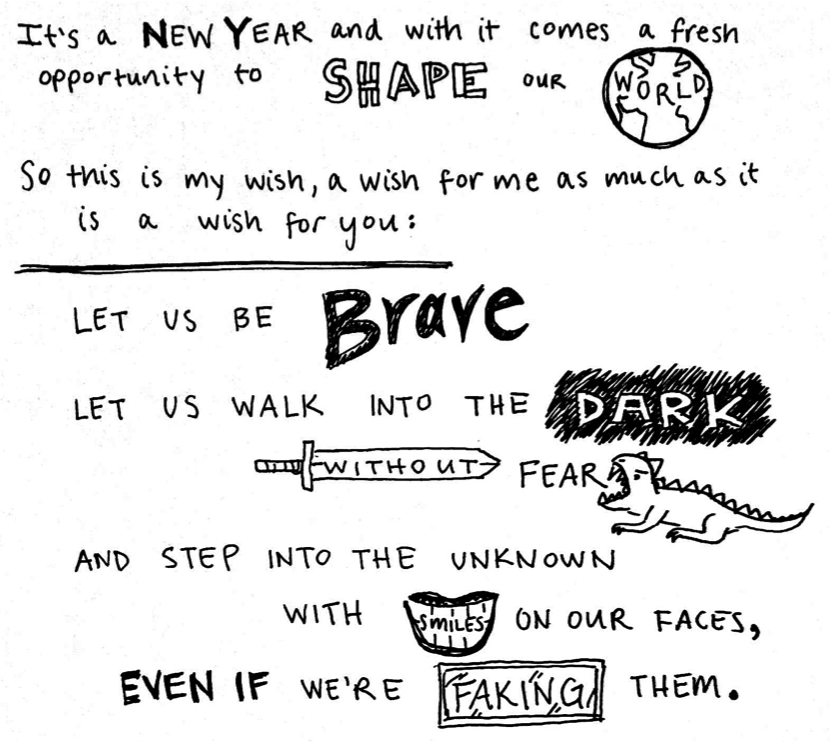 It's a NEW YEAR and with it comes a fresh
opportunity to SHAPE OUR WORLD
So this is my wish, a wish for me as much as it
is a wish for you:
LET US BE Brave
LET US WALK INTO THE DARK
WITHOUT FEAR
AND STEP INTO THE UNKNOWN
WITH SMILES ON OUR FACES,
EVEN IF WE'RE FAKING THEM.